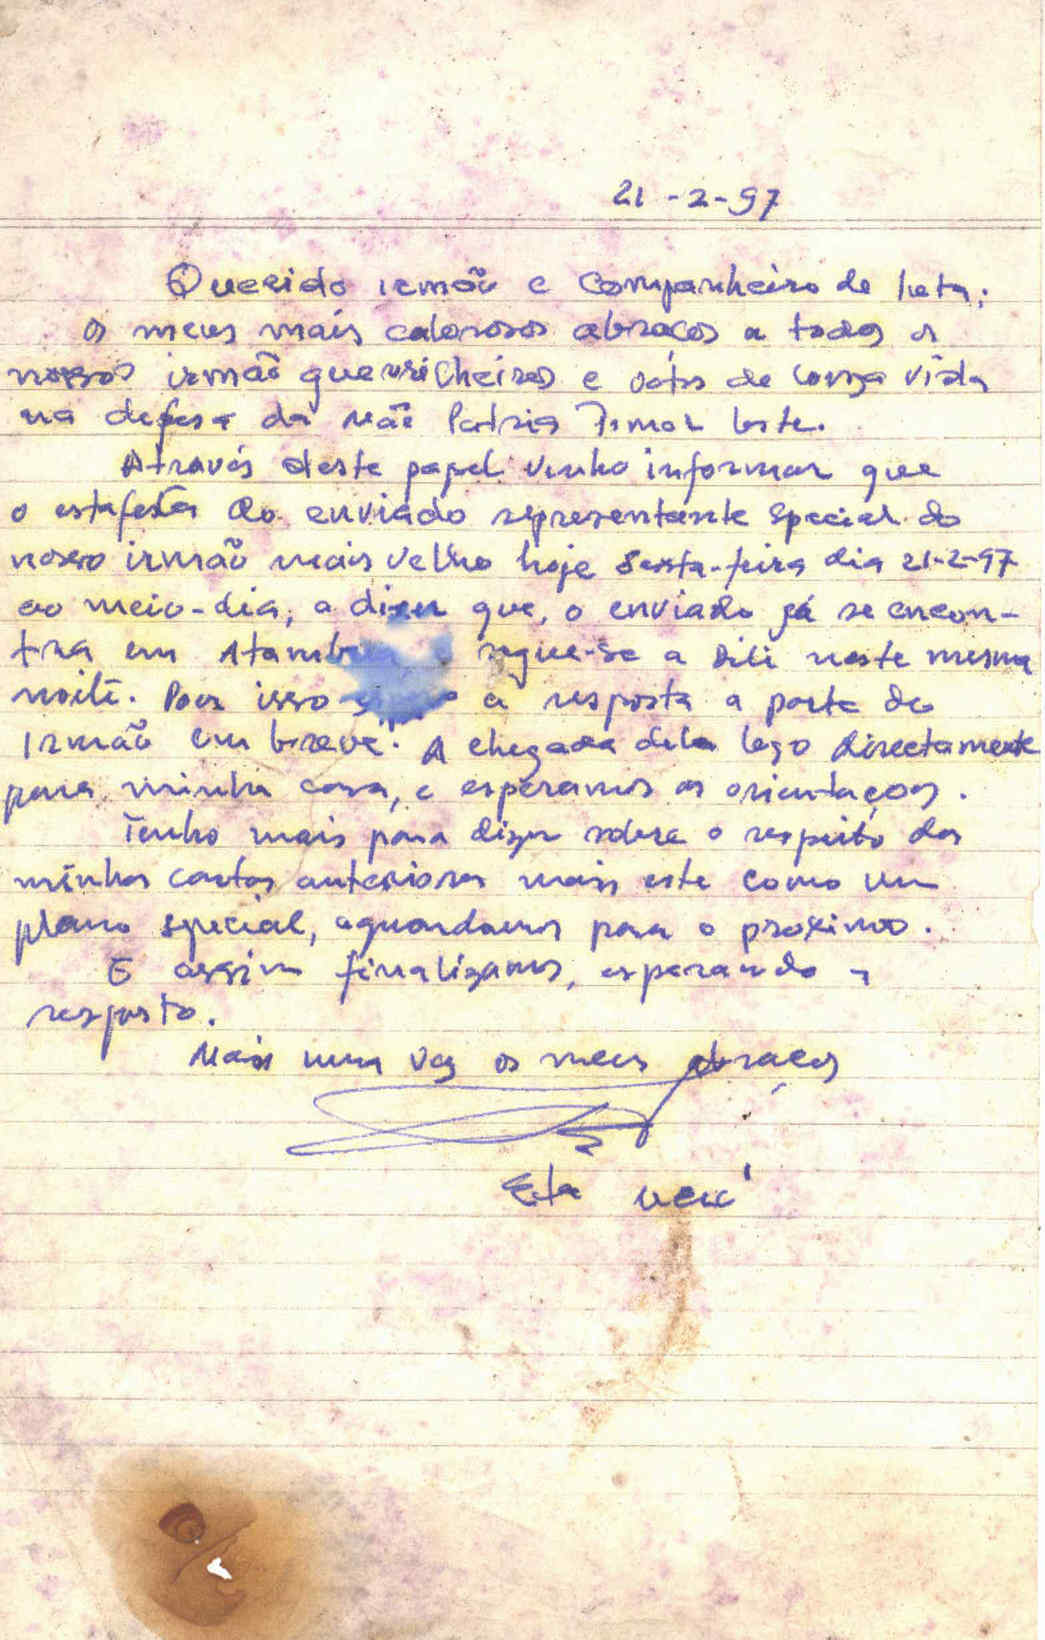 21-2-97
Querido irmão e Companheiro de luta:
Os meus mais calorosos abraços a todos os
nossos irmão guerrilheiros e votos de longa vida
na defesa da Mãe Patria Timor leste.
Através deste papel venho informar que
o estafeta do enviado representante special do
nosso irmão mais velho hoje Sexta-feira dia 21-2-97
ao meio-dia, a dizer que, o enviado já se encon-
tra em segue-se a Dili neste mesma
noite. Por isso a resposta a parte do
Irmão em breve. A chegada dele logo directamente
para minha casa, e esperamos as orientaçoes.
Tenho mais para dizer sobre o respeito das
minhas cartas anteriores mais este como um
plano special, aguardamos para o proximo.
E assim finalizamos, esperando a
resposta.
Mais uma vez os meus abraços